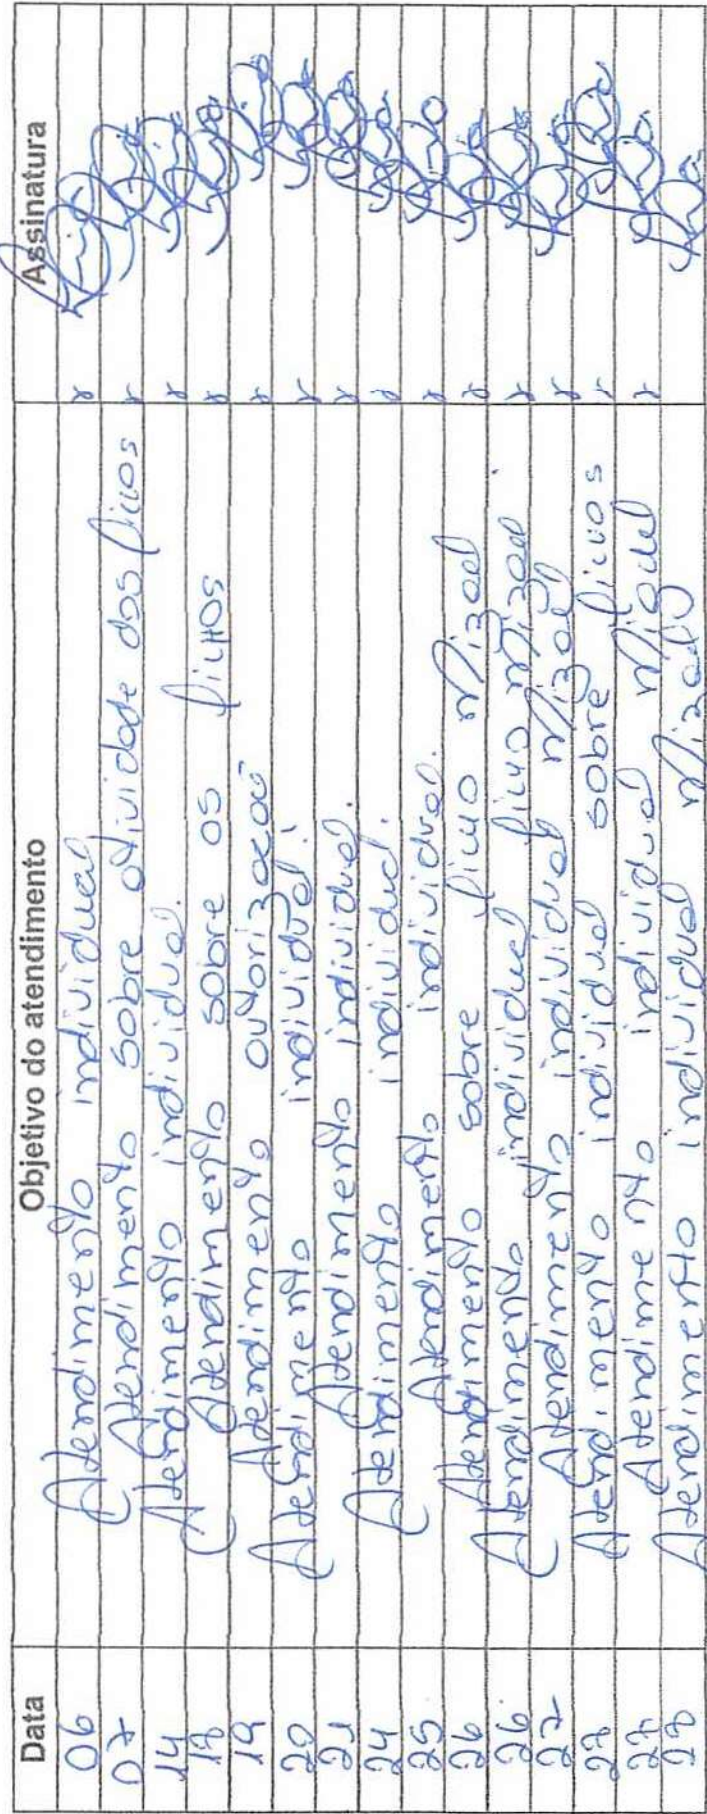 Data Objetivo do atendimento Assinatura
06 Atendimento individual x
07 Atendimento sobre atividade dos filhos x
14 Atendimento individual. x
18 Atendimento sobre os filhos x
19 Atendimento autorização x
20 Atendimento individual. x
21 Atendimento individual. x
24 Atendimento individual. x
25 Atendimento individual. x
26 Atendimento sobre filho Mizael x
26. Atendimento individual filho Mizael. x
27 Atendimento individual Mizael x
28 Atendimento individual sobre filhos x
28 Atendimento individual x
28 Atendimento individual Mizael